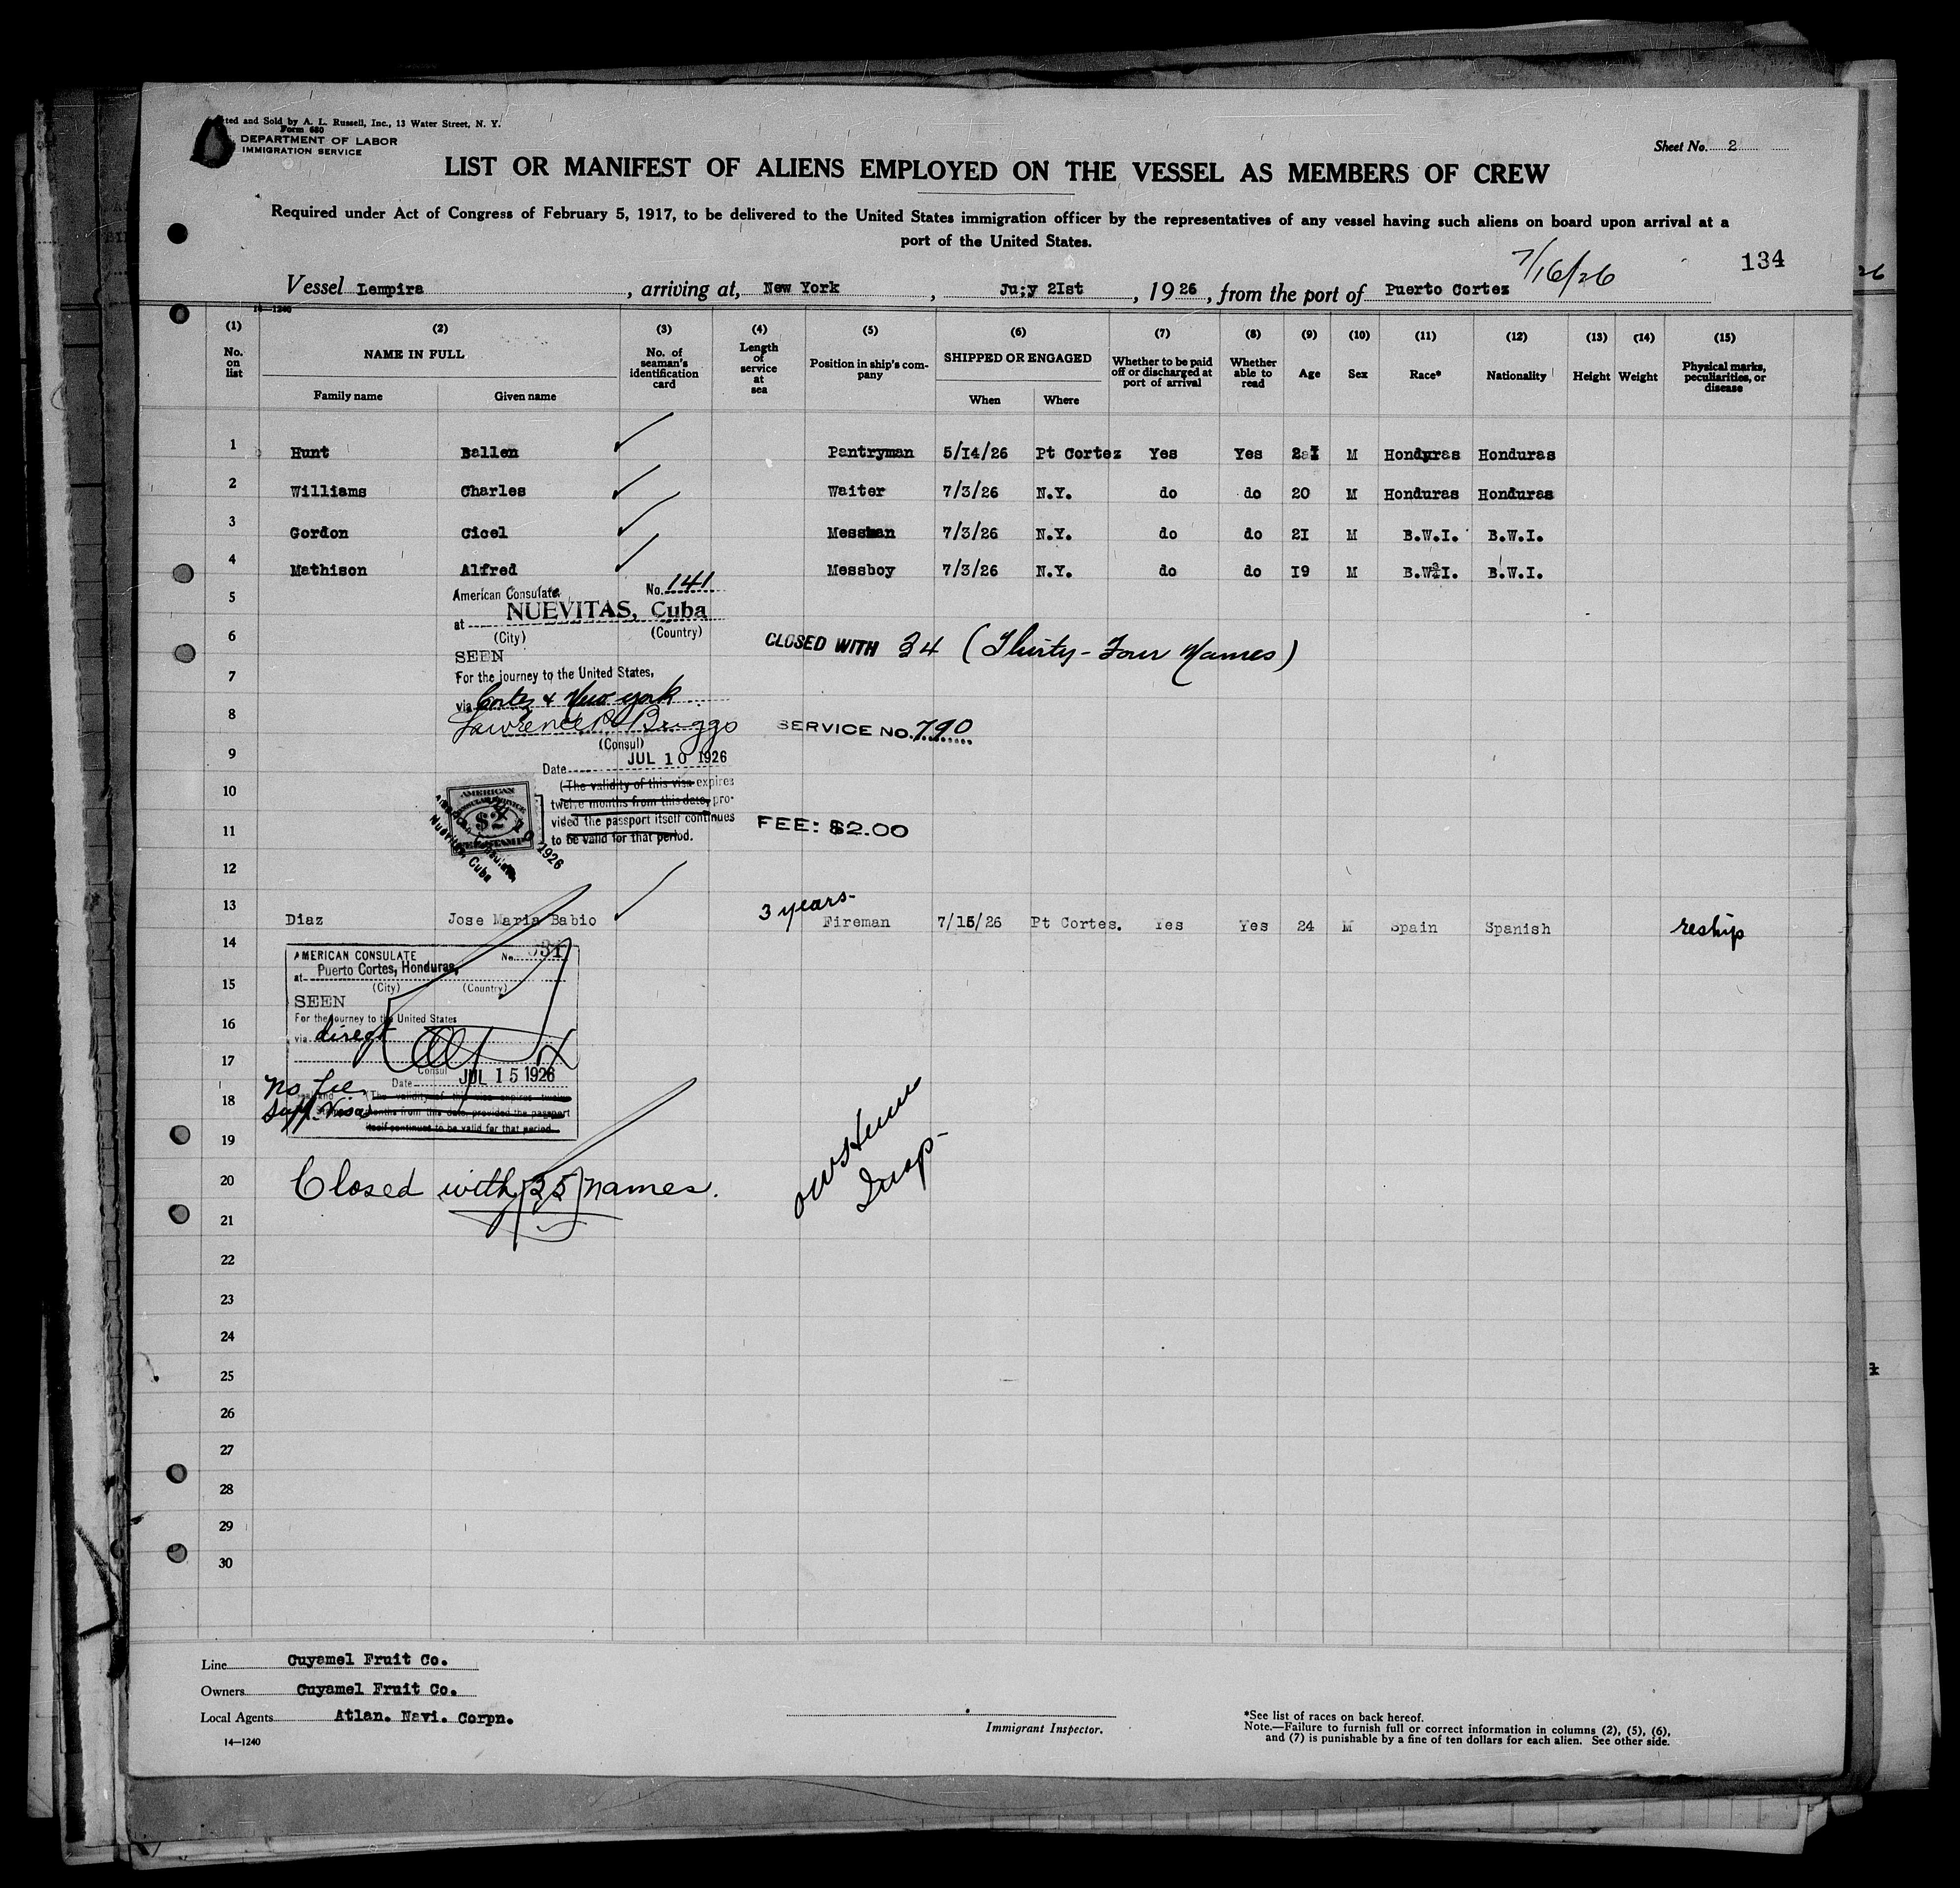 ted and Sold by A. L. Russell, Inc., 13 Water Street, N. Y.
Form 680
DEPARTMENT OF LABOR
IMMIGRATION SERVICE
Sheet No. 2
LIST OR MANIFEST OF ALIENS EMPLOYED ON THE VESSEL AS MEMBERS OF CREW
Required under Act of Congress of February 5, 1917, to be delivered to the United States immigration officer by the representatives of any vessel having such aliens on board upon arrival at a
port of the United States.
7/16/26
134
Vessel Lempira, arriving at, New York, Ju;y 2Ist, 1926, from the port of Puerto Cortez
14—1240
(1) (2) (3) (4) (5) (6) (7) (8) (9) (10) (11) (12) (13) (14) (15)
No. on list
NAME IN FULL
Family name Given name
No. of seaman's identification card
Length of service at sea
Position in ship's company
SHIPPED OR ENGAGED
When Where
Whether to be paid off or discharged at port of arrival
Whether able to read
Age
Sex
Race*
Nationality
Height
Weight
Physical marks, peculiarities, or disease
1 Hunt Ballen Pantryman 5/I4/26 Pt Cortez Yes Yes 2I M Honduras Honduras
2 Williams Charles Waiter 7/3/26 N.Y. do do 20 M Honduras Honduras
3 Gordon Cicel Messman 7/3/26 N.Y. do do 2I M B.W.I. B.W.I.
4 Mathison Alfred Messboy 7/3/26 N.Y. do do I9 M B.W.I. B.W.I.
5
American Consulate No. 141
at NUEVITAS, Cuba
(City) (Country)
6
CLOSED WITH 34 (Thirty-Four Names)
SEEN
7
For the journey to the United States,
via Cortez & New York
8
Lawrence P. Briggs
SERVICE NO. 790
(Consul)
9
Date JUL 10 1926
10
(The validity of this visa expires
twelve months from this date, pro-
vided the passport itself continues
to be valid for that period.
AMERICAN
CONSULAR SERVICE
$2
FEE STAMP
American Consulate,
Nuevitas, Cuba
1926
11
FEE: $2.00
12
3 years-
13 Diaz Jose Maria Babio Fireman 7/15/26 Pt Cortes. Yes Yes 24 M Spain Spanish reship
14
AMERICAN CONSULATE No.
at Puerto Cortes, Honduras,
15
(City) (Country)
SEEN
16
For the journey to the United States
via direct
17
Consul
Date JUL 15 1926
No fee
18
Supl. Visa
(The validity of this visa expires twelve
months from this date, provided the passport
itself continues to be valid for that period.
19
20
Closed with 35 names.
Insp-
21
22
23
24
25
26
27
28
29
30
Line Cuyamel Fruit Co.
Owners Cuyamel Fruit Co.
Local Agents Atlan. Navi. Corpn.
14—1240
Immigrant Inspector.
*See list of races on back hereof.
Note.—Failure to furnish full or correct information in columns (2), (5), (6),
and (7) is punishable by a fine of ten dollars for each alien. See other side.